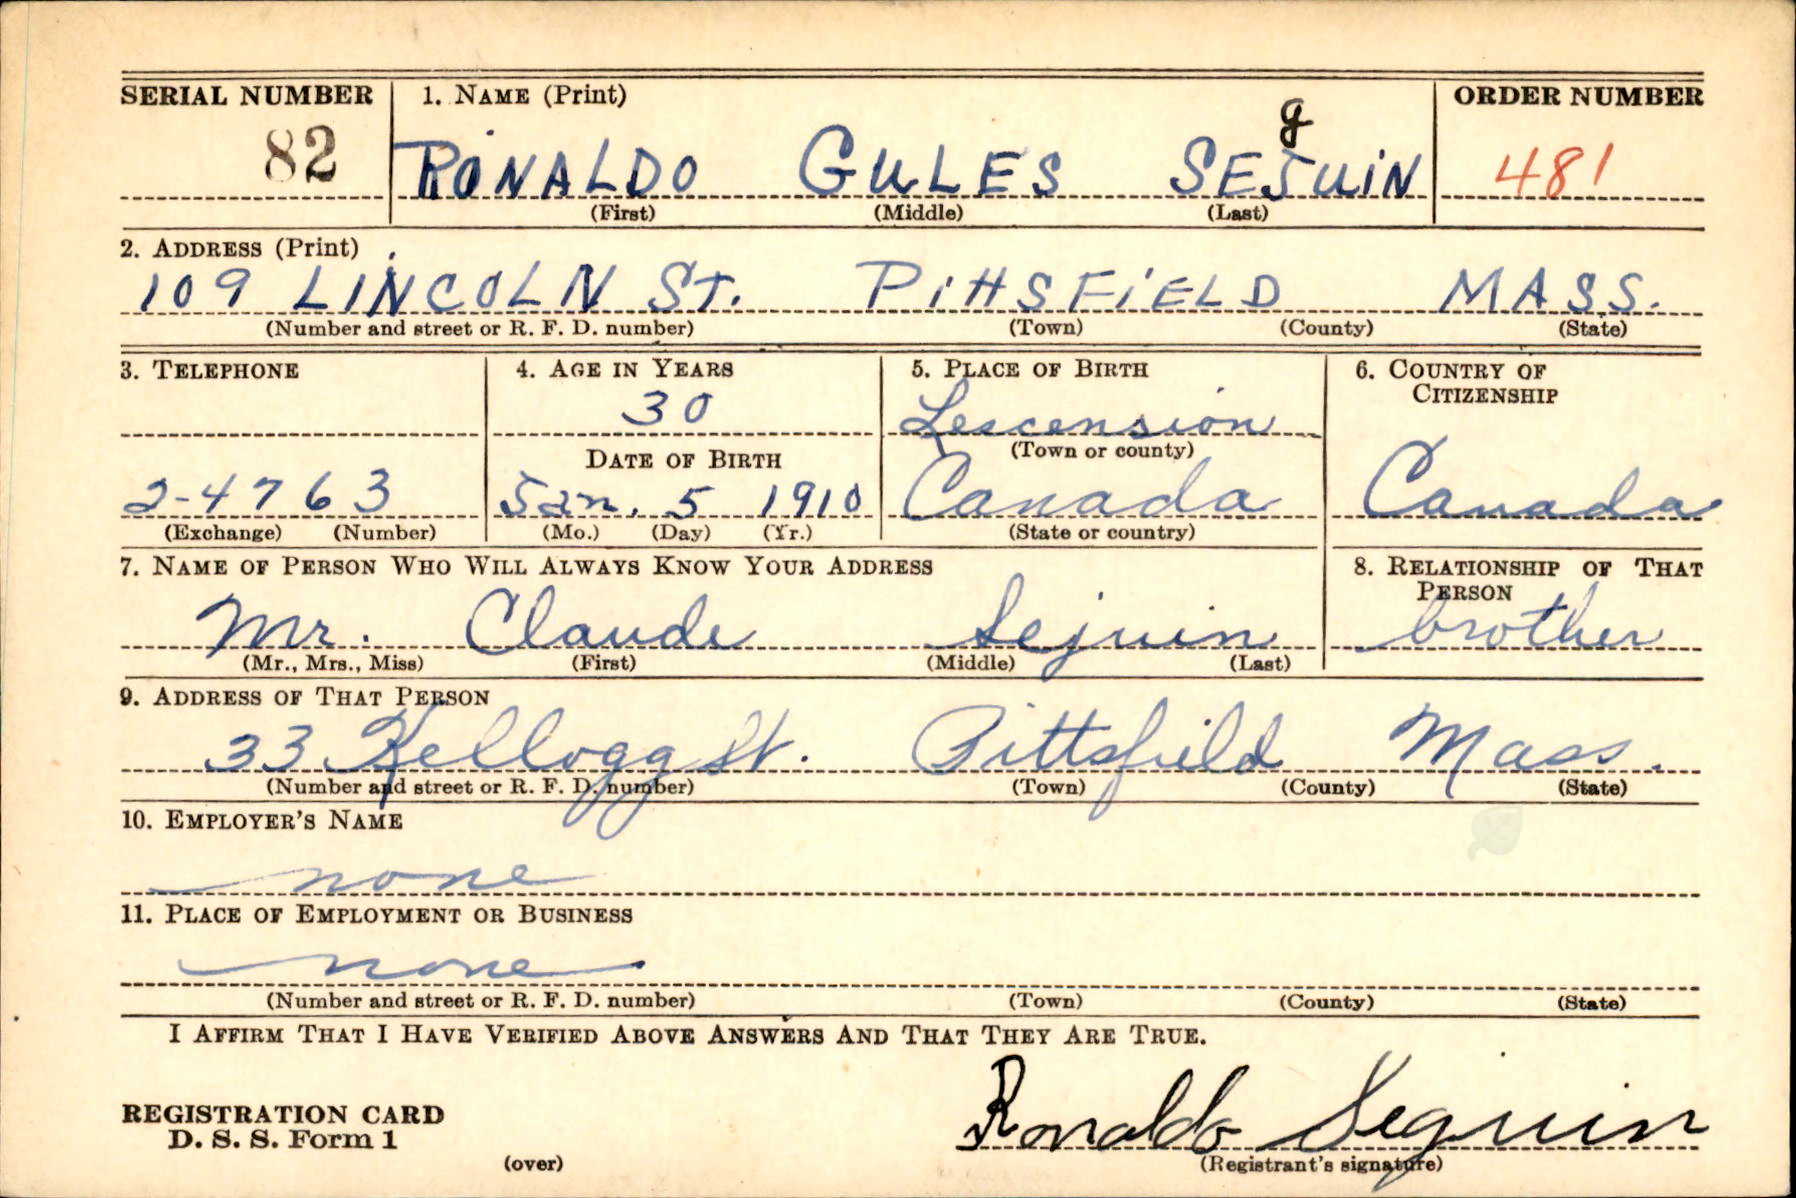 SERIAL NUMBER 1. NAME (Print) ORDER NUMBER
g
82 RONALDO GULES SEJUIN 481
(First) (Middle) (Last)
2. ADDRESS (Print)
109 LINCOLN ST. PITTSFIELD MASS.
(Number and street or R. F. D. number) (Town) (County) (State)
3. TELEPHONE 4. AGE IN YEARS 5. PLACE OF BIRTH 6. COUNTRY OF
CITIZENSHIP
30 Lescension
(Town or county)
DATE OF BIRTH
2-4763 Jan. 5 1910 Canada Canada
(Exchange) (Number) (Mo.) (Day) (Yr.) (State or country)
7. NAME OF PERSON WHO WILL ALWAYS KNOW YOUR ADDRESS 8. RELATIONSHIP OF THAT
PERSON
Mr. Claude Sejuin brother
(Mr., Mrs., Miss) (First) (Middle) (Last)
9. ADDRESS OF THAT PERSON
33 Kellogg St. Pittsfield Mass.
(Number and street or R. F. D. number) (Town) (County) (State)
10. EMPLOYER'S NAME
none
11. PLACE OF EMPLOYMENT OR BUSINESS
none
(Number and street or R. F. D. number) (Town) (County) (State)
I AFFIRM THAT I HAVE VERIFIED ABOVE ANSWERS AND THAT THEY ARE TRUE.
REGISTRATION CARD
D. S. S. Form 1 Ronaldo Seguin
(over) (Registrant's signature)